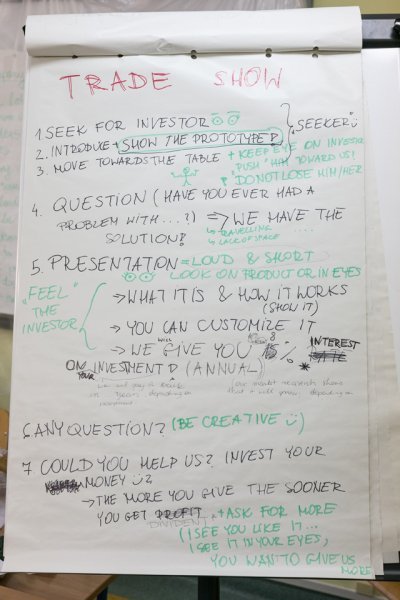 TRADE SHOW
1 SEEK FOR INVESTOR
2. INTRODUCE + SHOW THE PROTOTYPE
3. MOVE TOWARDS THE TABLE
SEEKER
+ KEEP EYE ON INVESTOR
PUSH HIM TOWARD US!
DO NOT LOSE HIM/HER
4. QUESTION (HAVE YOU EVER HAD A
PROBLEM WITH...?) ⇒ WE HAVE THE
SOLUTION!
↳ TRAVELLING ....
↳ LACK OF SPACE
5. PRESENTATION = LOUD & SHORT
LOOK ON PRODUCT OR IN EYES
"FEEL"
THE
INVESTOR
→ WHAT IT IS & HOW IT WORKS
(SHOW IT)
→ YOU CAN CUSTOMIZE IT
→ WE WILL GIVE YOU 8 %
INTEREST
ON YOUR INVESTMENT (ANNUAL) *
6 ANY QUESTION? (BE CREATIVE :)
7 COULD YOU HELP US? INVEST YOUR
MONEY :)?
→ THE MORE YOU GIVE THE SOONER
YOU GET PROFIT
DIVIDENT
+ ASK FOR MORE
(I SEE YOU LIKE IT...
I SEE IT IN YOUR EYES,
YOU WANT TO GIVE US
MORE